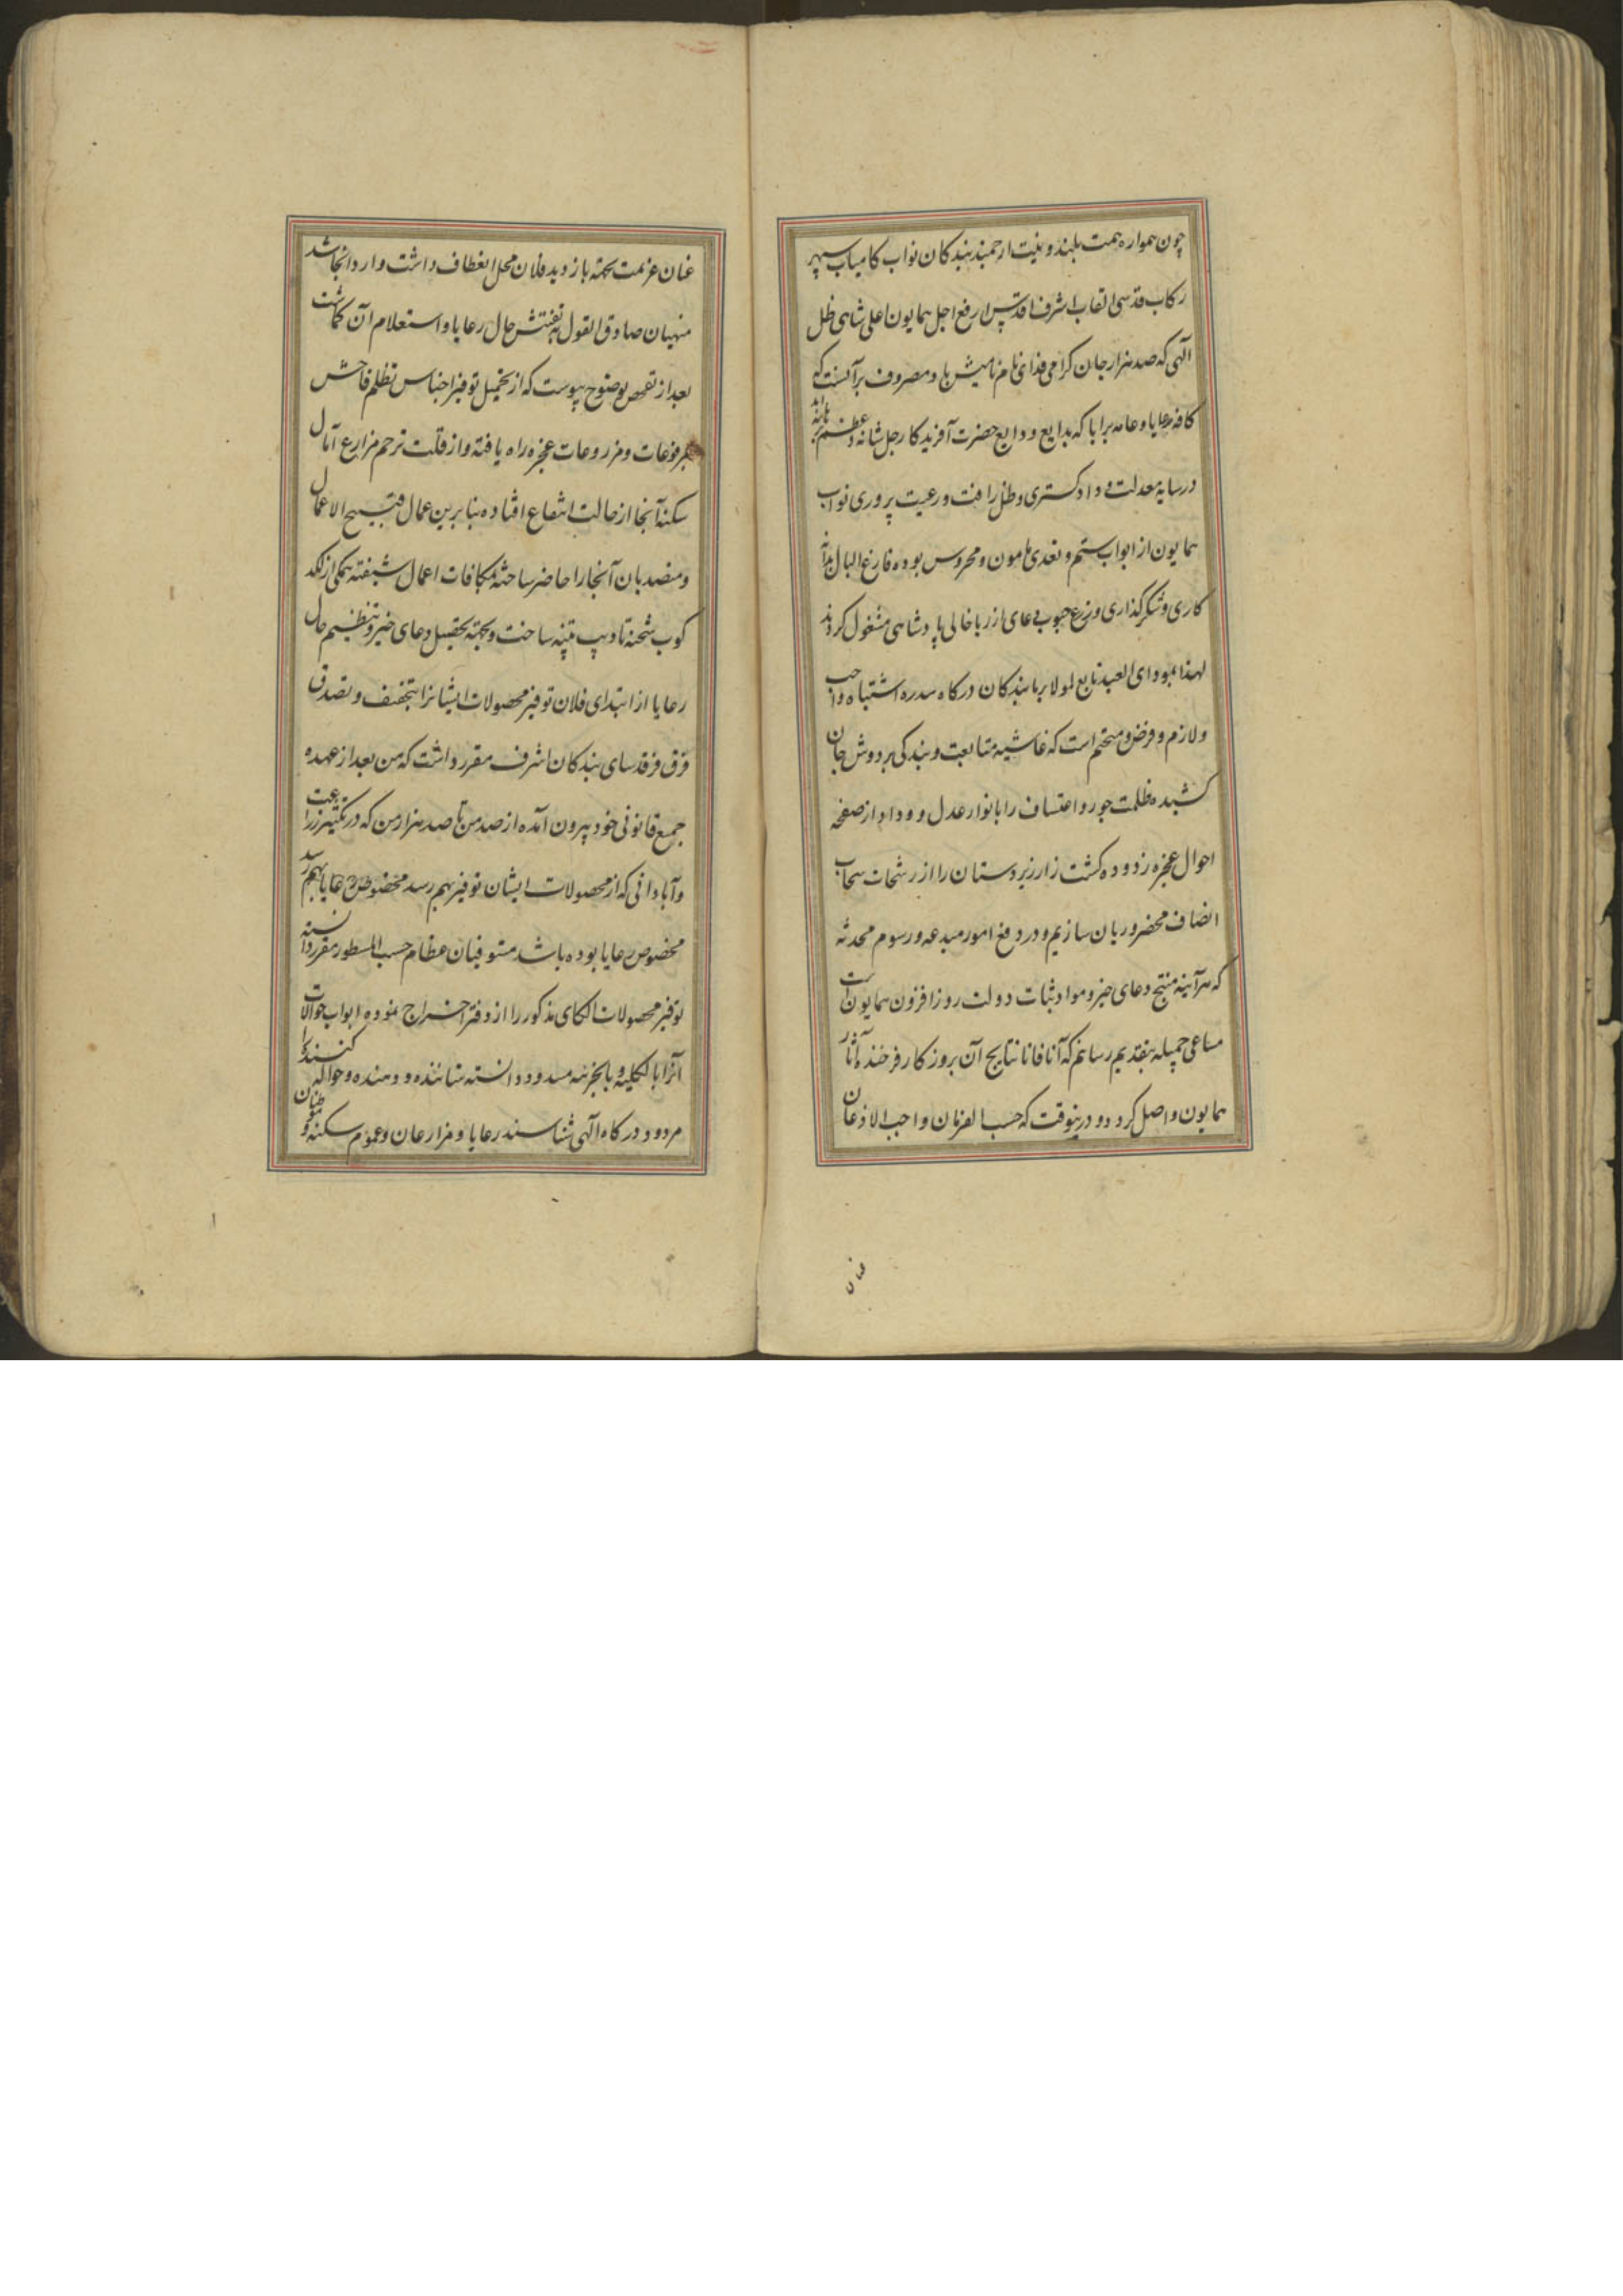 چون همواره همت بلند و نیت ارجمند بندکان نواب کامیاب سپهر
رکاب قدسی القاب اشرف اقدس ارفع اجل همایون اعلی شاهی ظل
الهی که صد هزار جان کرامی فدای نام نامیش باد مصروف بر آنست که
کافه رعایا و عامه برایا که بدایع ودایع حضرت آفریدکار جل شانه و عظم برهانه اند
در سایه معدلت و دادکستری و ظل رافت و رعیت پروری نواب
همایون از ابواب ستم و تعدی مامون و محروس بوده فارغ البال بدانه
کاری و شکر کذاری و زرع حبوب دعای از ریا خالی پادشاهی مشغول کردند
لهذا بمودای العبد تابع لمولا بر ما بندکان درکاه سدره اشتباه واجب
و لازم و فرض و متحتم است که غاشیه متابعت و بندکی بر دوش جان
کشیده ظلمت جور و اعتساف را بانوار عدل و وداد از صفحه
احوال عجزه زدوده کشت زار زیردستان را از رشحات سحاب
انصاف مخضر و ریان سازیم و در دفع امور مبدعه و رسوم محدثه
که هرآینه منتج دعای خیر و مواد ثبات دولت روزافزون همایون است
مساعی جمیله بتقدیم رسانیم که آنا فانا نتایج آن بروزکار فرخنده آثار
همایون واصل کردد و درینوقت که حسب الفرمان واجب الاذعان
عنان
عنان عزیمت بجهته بازدید فلان محل انعطاف داشت وارد آنجا شد
منهیان صادق القول به تفتیش حال رعایا و استعلام آن کماشت
بعد از تفحص بوضوح پیوست که از تحمیل توفیر اجناس تظلم فاحش
بمرفوعات و مزروعات عجزه راه یافته و از قلت ترحم مزارع آمال
سکنه آنجا از حالت انتفاع افتاده بنابرین عمال قبیح الاعمال
و متصدیان آنجا را حاضر ساخته بمکافات اعمال شیفته همکی از لکد
کوب شحنه تادیب متنبه ساخت و بجهته تحصیل دعای خیر و تنظیم حال
رعایا از ابتدای فلان توفیر محصولات ایشانرا بتخفیف و تصدق
فرق فرقدسای بندکان اشرف مقرر داشت که من بعد از عهده
جمیع قانونی خود بیرون آمده از صد من تا صد هزار من که در تکثیر زراعت
و آبادانی که از محصولات ایشان توفیر بهم رسد مخصوص رعایا بهم رسد
مخصوص رعایا بوده باشد مستوفیان عظام حسب المسطور مقرر دانسته
توفیر محصولات الکای مذکور را از دفتر اخراج نموده ابواب حوالات
آنرا بالکلیه و بالجزئیه مسدود دانسته ستاننده و دهنده و حواله کننده را
مردود درکاه الهی شناسند رعایا و مزارعان و عموم سکنه و متوطنان